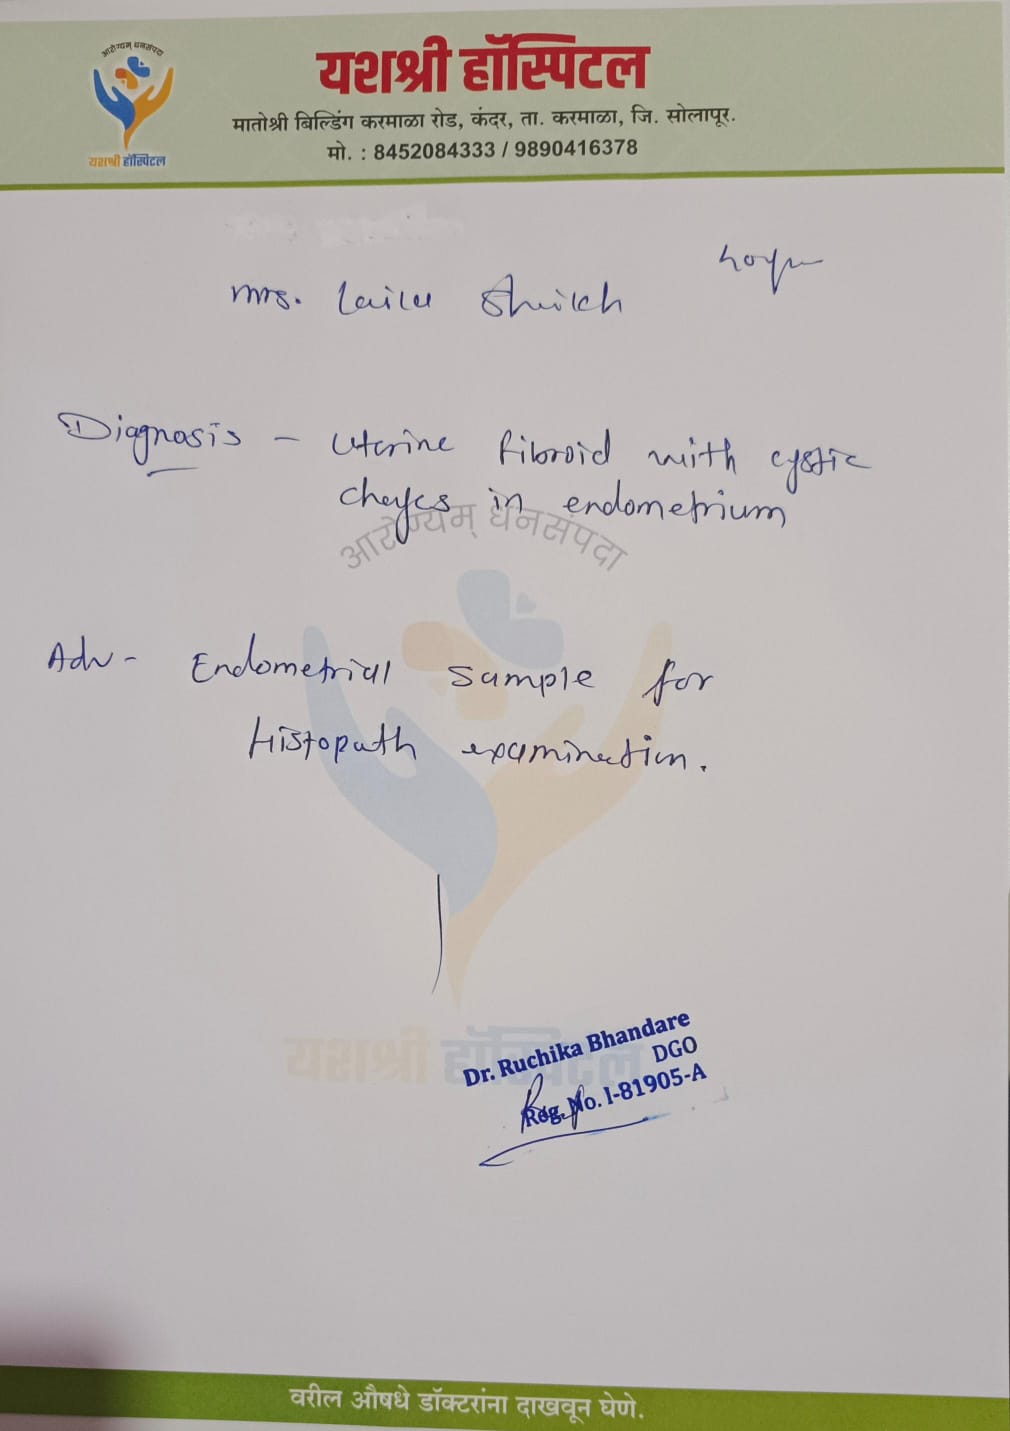 आरोग्यम् धनसंपदा
यशश्री हॉस्पिटल
यशश्री हॉस्पिटल
मातोश्री बिल्डिंग करमाळा रोड, कंदर, ता. करमाळा, जि. सोलापूर.
मो. : 8452084333 / 9890416378
Mrs. Laila Shaikh
Diagnosis - Uterine fibroid with cystic
changes in endometrium
आरोग्यम् धनसंपदा
Adv - Endometrial sample for
Histopath examination.
यशश्री हॉस्पिटल
Dr. Ruchika Bhandare
DGO
Reg. No. I-81905-A
वरील औषधे डॉक्टरांना दाखवून घेणे.